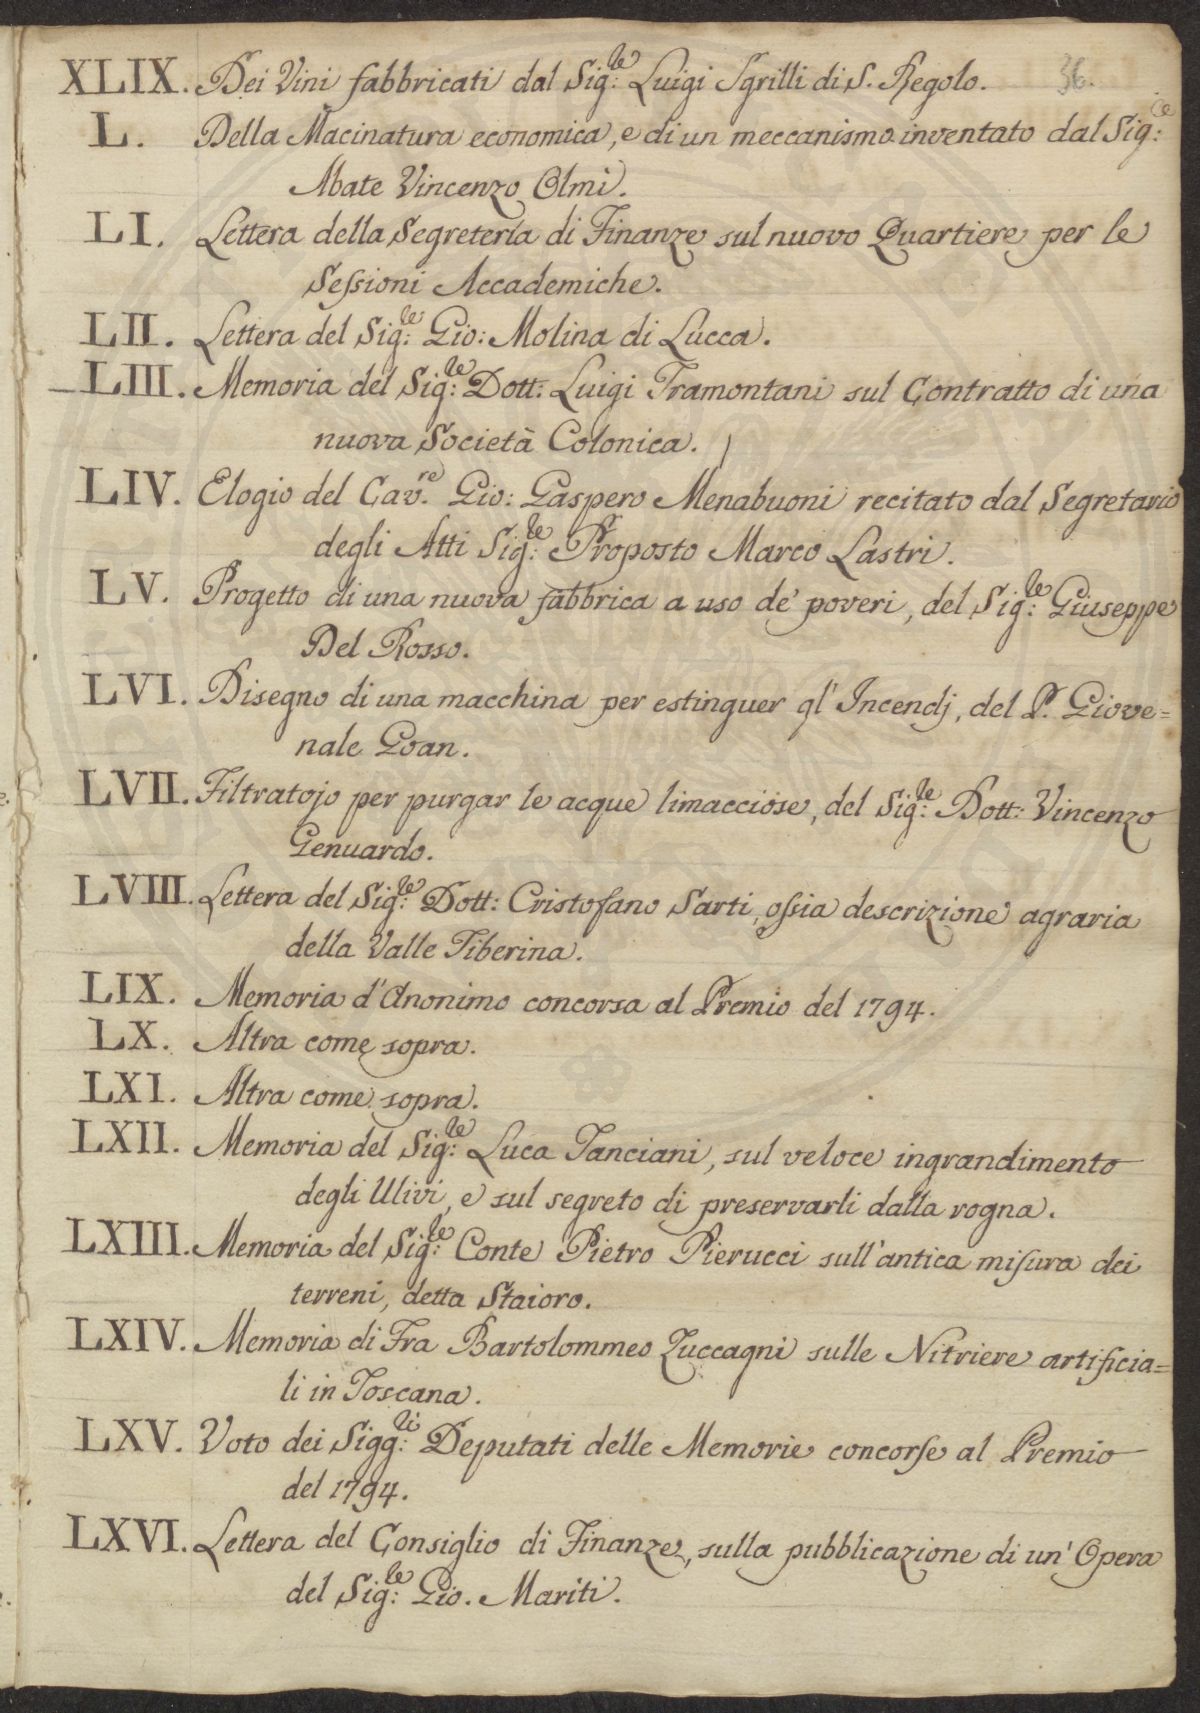 36.
XLIX. Dei Vini fabbricati dal Sig:le Luigi Sgrilli di S. Regolo.
L. Della Macinatura economica, e di un meccanismo inventato dal Sig:ce
Abate Vincenzo Olmi.
LI. Lettera della Segreteria di Finanze sul nuovo Quartiere per le
Seſsioni Accademiche.
LII. Lettera del Sig:le Gio: Molina di Lucca.
LIII. Memoria del Sig:le Dott: Luigi Tramontani sul Contratto di una
nuova Società Colonica.
LIV. Elogio del Cav:re Gio: Gaspero Menabuoni recitato dal Segretario
degli Atti Sig:le Proposto Marco Lastri.
LV. Progetto di una nuova fabbrica a uso de' poveri, del Sig:le Giuseppe
Del Rosso.
LVI. Disegno di una macchina per estinguer gl' Incendj, del P. Giove=
nale Goan.
LVII. Filtratojo per purgar le acque limacciose, del Sig:le Dott: Vincenzo
Genuardo.
LVIII. Lettera del Sig:le Dott: Cristofano Sarti, oſsia descrizione agraria
della Valle Tiberina.
LIX. Memoria d'Anonimo concorsa al Premio del 1794.
LX. Altra come sopra.
LXI. Altra come sopra.
LXII. Memoria del Sig:le Luca Tanciani, sul veloce ingrandimento
degli Ulivi, e sul segreto di preservarli dalla rogna.
LXIII. Memoria del Sig:le Conte Pietro Pierucci sull'antica miſura dei
terreni, detta Staioro.
LXIV. Memoria di Fra Bartolommeo Zuccagni sulle Nitriere artificia=
li in Toscana.
LXV. Voto dei Sigg:li Deputati delle Memorie concorſe al Premio
del 1794.
LXVI. Lettera del Consiglio di Finanze, sulla pubblicazione di un' Opera
del Sig:le Gio. Mariti.